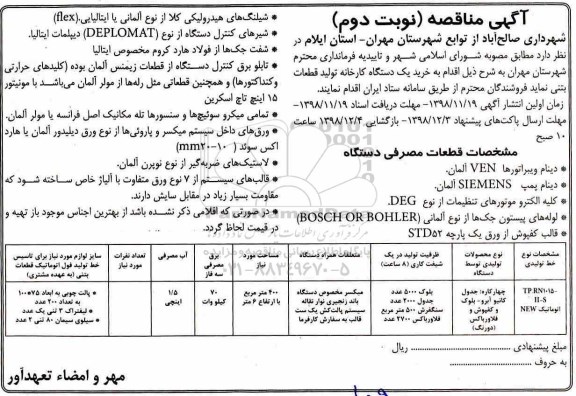 آگهی مناقصه (نوبت دوم)
شهرداری صالح‌آباد از توابع شهرستان مهران- استان ایلام در
نظر دارد مطابق مصوبه شورای اسلامی شهر و تاییدیه فرمانداری محترم
شهرستان مهران به شرح ذیل اقدام به خرید یک دستگاه کارخانه تولید قطعات
بتنی نماید فروشندگان محترم از طریق سامانه ستاد ایران اقدام نمایند.
زمان اولین انتشار آگهی ۱۳۹۸/۱۱/۱۹- مهلت دریافت اسناد ۱۳۹۸/۱۱/۱۹-
مهلت ارسال پاکت‌های پیشنهاد ۱۳۹۸/۱۲/۳- بازگشایی ۱۳۹۸/۱۲/۴ ساعت
۱۰ صبح
مشخصات قطعات مصرفی دستگاه
* دینام ویبراتورها VEN آلمان.
* دینام پمپ SIEMENS آلمان.
* کلیه الکترو موتورهای تنظیمات از نوع DEG.
* لوله‌های پیستون جک‌ها از نوع آلمانی (BOSCH OR BOHLER)
* قالب کفپوش از ورق یک پارچه STD52
* شیلنگ‌های هیدرولیکی کلا از نوع آلمانی یا ایتالیایی.(flex)
* شیرهای کنترل دستگاه از نوع (DEPLOMAT) دیپلمات ایتالیا.
* شفت جک‌ها از فولاد هارد کروم مخصوص ایتالیا
* تابلو برق کنترل دستگاه از قطعات زیمنس آلمان بوده (کلیدهای حرارتی
وکنتاکتورها) و همچنین قطعاتی مثل رله‌ها از مولر آلمان می‌باشد با مونیتور
۱۵ اینچ تاچ اسکرین
* تمامی میکرو سوئیچ‌ها و سنسورها تله مکانیک اصل فرانسه یا مولر آلمان.
* ورق‌های داخل سیستم میکسر و پاروئی‌ها از نوع ورق دیلیدور آلمان یا هارد
اکس سوئد ( ۱۰-mm۲۰)
* لاستیک‌های ضربه‌گیر از نوع نوپرن آلمان.
* قالب‌های سیستم از ۷ نوع ورق متفاوت با آلیاژ خاص ساخته شود که
مقاومت بسیار زیاد در مقابل سایش دارند.
* در صورتی که اقلامی ذکر نشده باشد از بهترین اجناس موجود باز تهیه و
در قیمت لحاظ گردد.
مشخصات نوع خط تولیدی | نوع محصولات تولیدی توسط دستگاه | ظرفیت تولید در یک شیفت کاری (۸ ساعت) | متعلقات همراه دستگاه | مساحت مورد نیاز | برق مصرفی سه فاز | آب مصرفی | تعداد نفرات مورد نیاز | سایر لوازم مورد نیاز برای تاسیس خط تولید فول اتوماتیک قطعات بتنی (به عهده مشتری)
TP.RN1015-II-S اتوماتیک NEW | چهارکاره: جدول کانیو آبرو- بلوک و کفپوش و فلاورباکس (دورنگ) | بلوک ۵۰۰۰ عدد جدول ۲۰۰۰ عدد سنگفرش ۵۰۰ متر مربع فلاورباکس ۲۷۰۰ عدد | میکسر مخصوص دستگاه باند زنجیری نوار نقاله سیستم پالت‌کش یک ست قالب به سفارش کارفرما | ۴۰۰ متر مربع با ارتفاع ۶ متر | ۷۰ کیلو وات | ۱/۵ اینچی | * پالت چوبی به ابعاد ۷۵*۱۰۰ به تعداد ۲۰۰ عدد * لیفتراک ۳ تنی یک عدد * سیلوی سیمان ۸۰ تنی ۲ عدد
مبلغ پیشنهادی ........ ریال
به حروف ........
مهر و امضاء تعهدآور